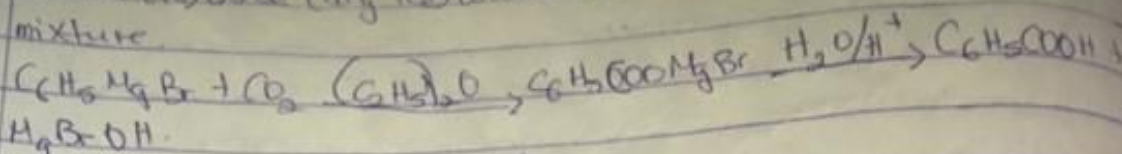 mixture
C6H5MgBr + CO2 (C2H5)2O → C6H5COOMgBr H2O/H+ → C6H5COOH +
MgBrOH.